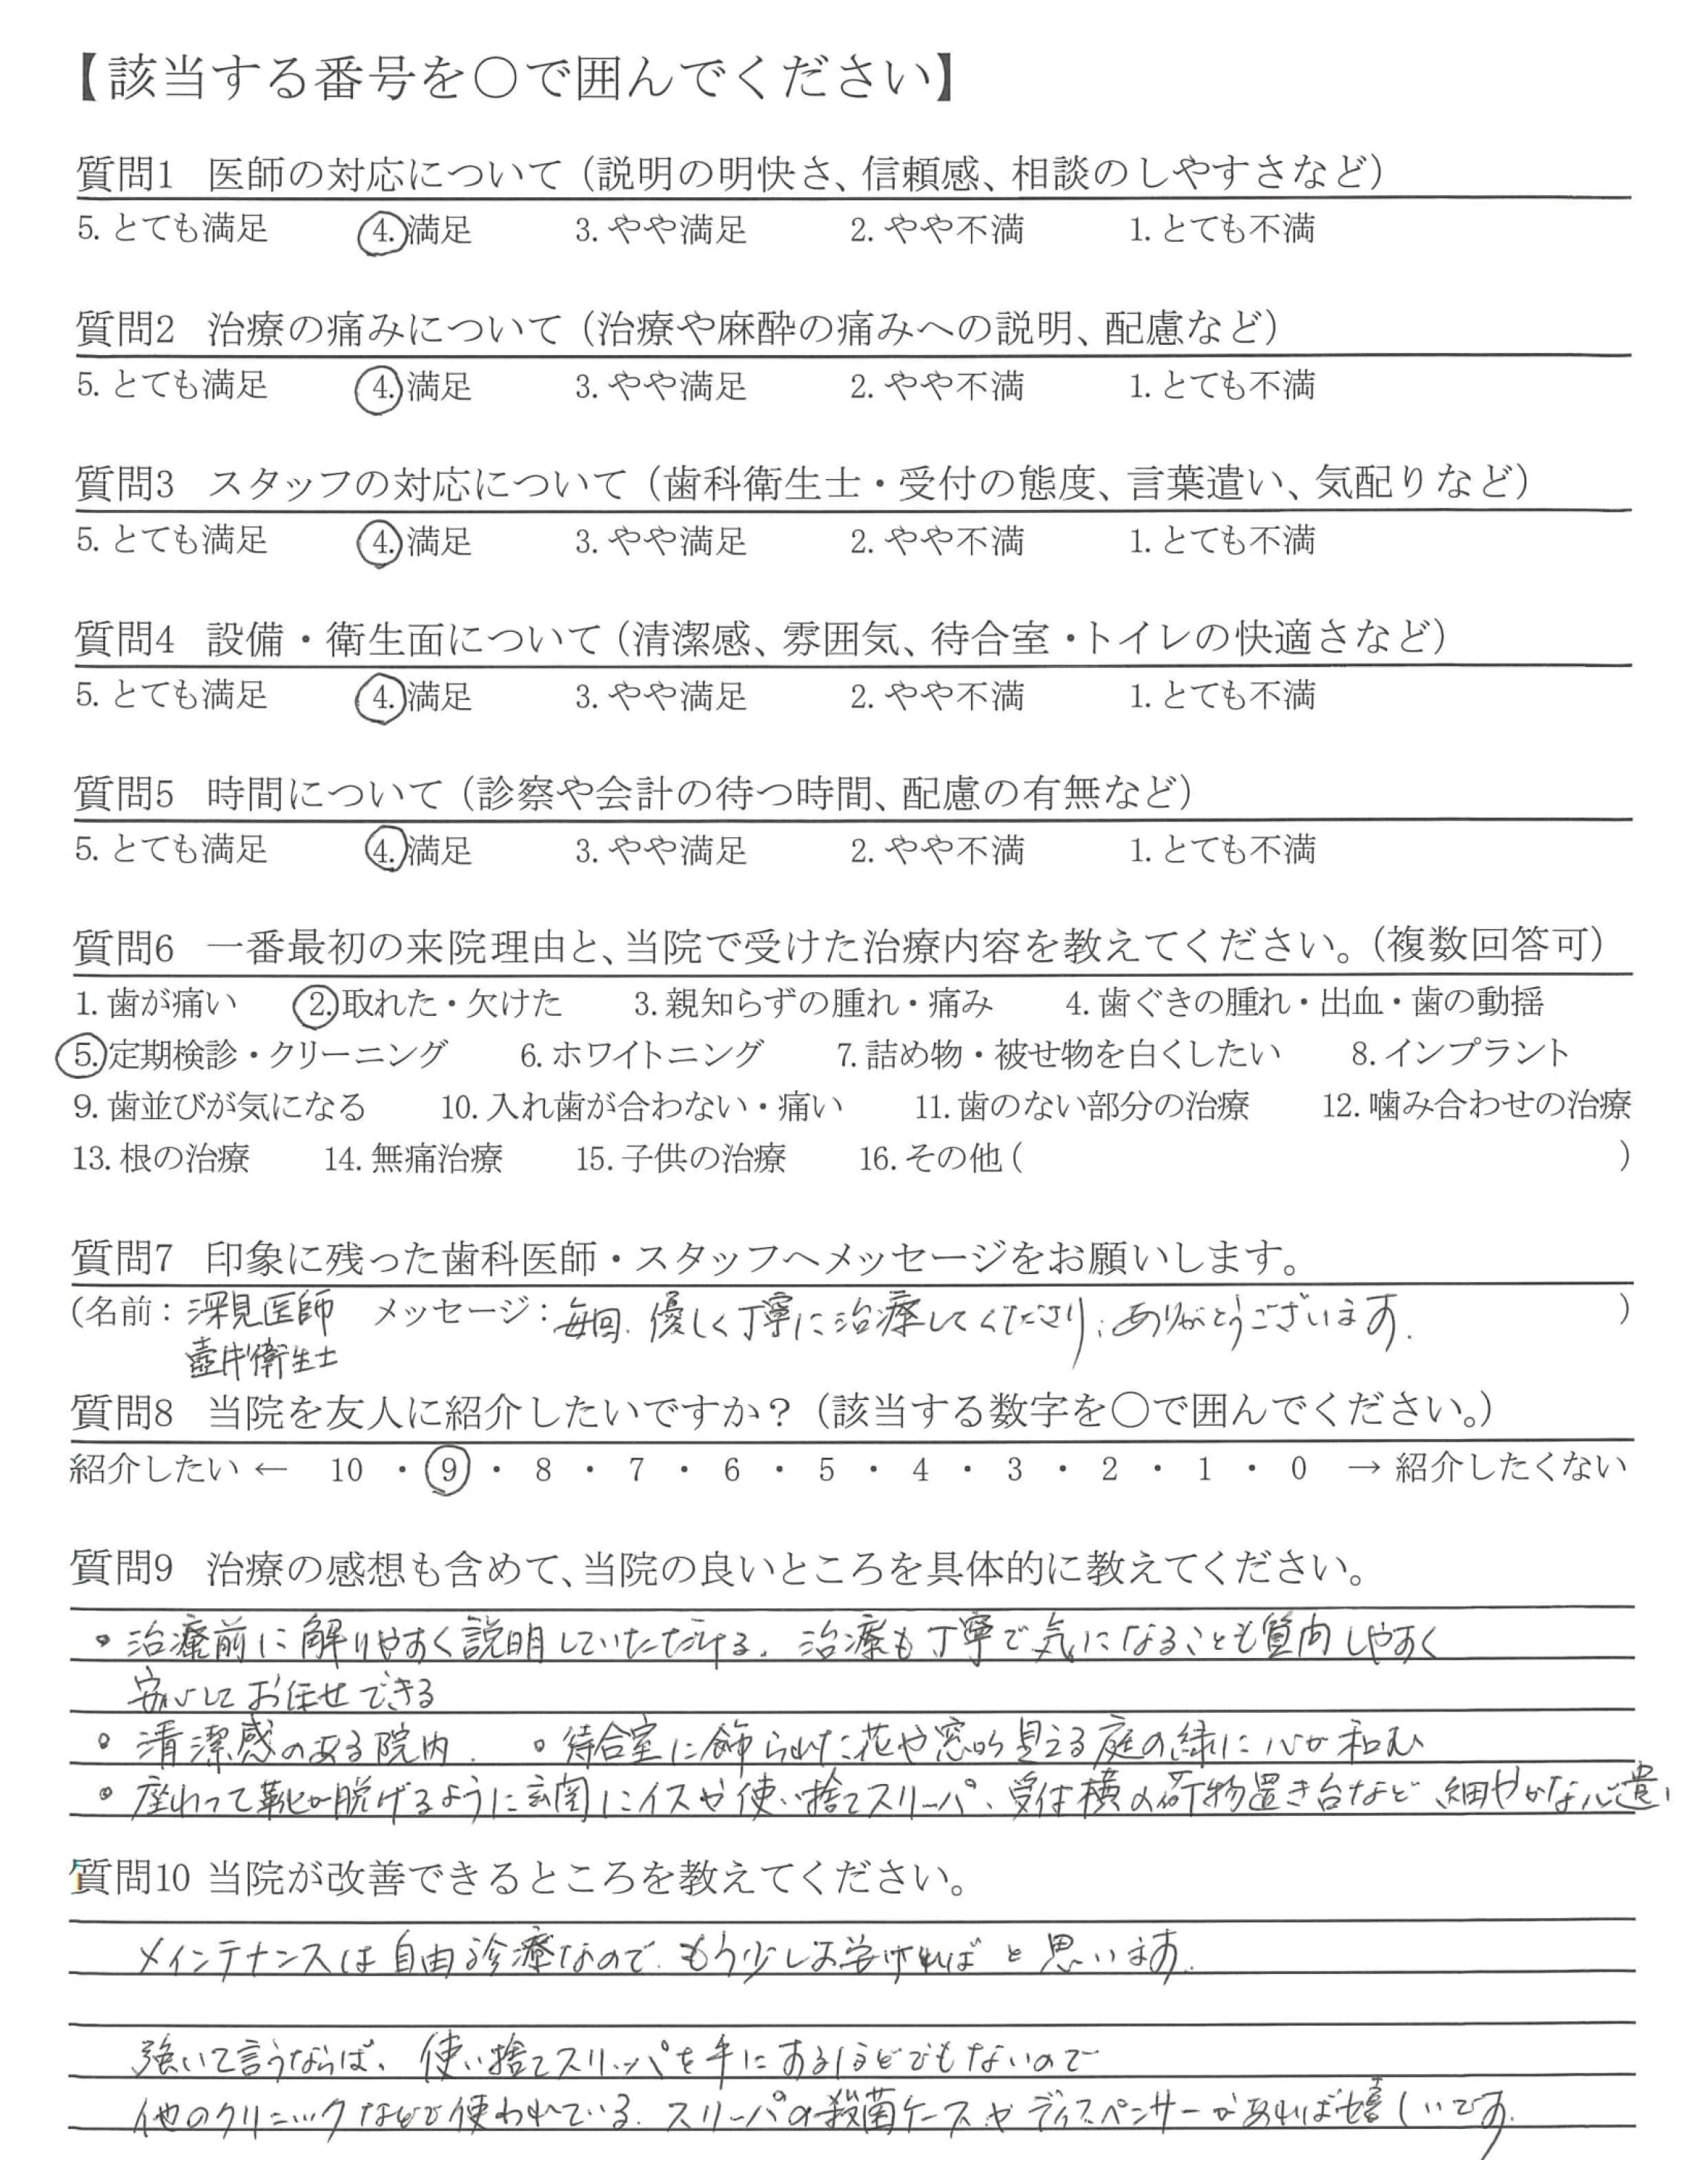 【該当する番号を〇で囲んでください】
質問1 医師の対応について（説明の明快さ、信頼感、相談のしやすさなど）
5. とても満足 4. 満足 3. やや満足 2. やや不満 1. とても不満
質問2 治療の痛みについて（治療や麻酔の痛みへの説明、配慮など）
5. とても満足 4. 満足 3. やや満足 2. やや不満 1. とても不満
質問3 スタッフの対応について（歯科衛生士・受付の態度、言葉遣い、気配りなど）
5. とても満足 4. 満足 3. やや満足 2. やや不満 1. とても不満
質問4 設備・衛生面について（清潔感、雰囲気、待合室・トイレの快適さなど）
5. とても満足 4. 満足 3. やや満足 2. やや不満 1. とても不満
質問5 時間について（診察や会計の待つ時間、配慮の有無など）
5. とても満足 4. 満足 3. やや満足 2. やや不満 1. とても不満
質問6 一番最初の来院理由と、当院で受けた治療内容を教えてください。（複数回答可）
1. 歯が痛い 2. 取れた・欠けた 3. 親知らずの腫れ・痛み 4. 歯ぐきの腫れ・出血・歯の動揺
5. 定期検診・クリーニング 6. ホワイトニング 7. 詰め物・被せ物を白くしたい 8. インプラント
9. 歯並びが気になる 10. 入れ歯が合わない・痛い 11. 歯のない部分の治療 12. 噛み合わせの治療
13. 根の治療 14. 無痛治療 15. 子供の治療 16. その他（ ）
質問7 印象に残った歯科医師・スタッフへメッセージをお願いします。
（名前：深見医師 メッセージ：毎回、優しく丁寧に治療してくださり、ありがとうございます. ）
衛生士
質問8 当院を友人に紹介したいですか？（該当する数字を〇で囲んでください。）
紹介したい ← 10 ・ 9 ・ 8 ・ 7 ・ 6 ・ 5 ・ 4 ・ 3 ・ 2 ・ 1 ・ 0 → 紹介したくない
質問9 治療の感想も含めて、当院の良いところを具体的に教えてください。
・治療前に解りやすく説明していただける. 治療も丁寧で気になることも質問しやすく
安心してお任せできる
・清潔感のある院内. ・待合室に飾られた花や窓から見える庭の緑に心が和む
・座わって靴が脱げるように玄関にイスや使い捨てスリッパ、受付横の荷物置き台など 細やかな心遣い
質問10 当院が改善できるところを教えてください。
メインテナンスは自由診療なので、もう少しお安ければと思います.
強いて言うならば、使い捨てスリッパを手にするほどでもないので
他のクリニックなどで使われている、スリッパの殺菌ケースやディスペンサーがあれば嬉しいです.